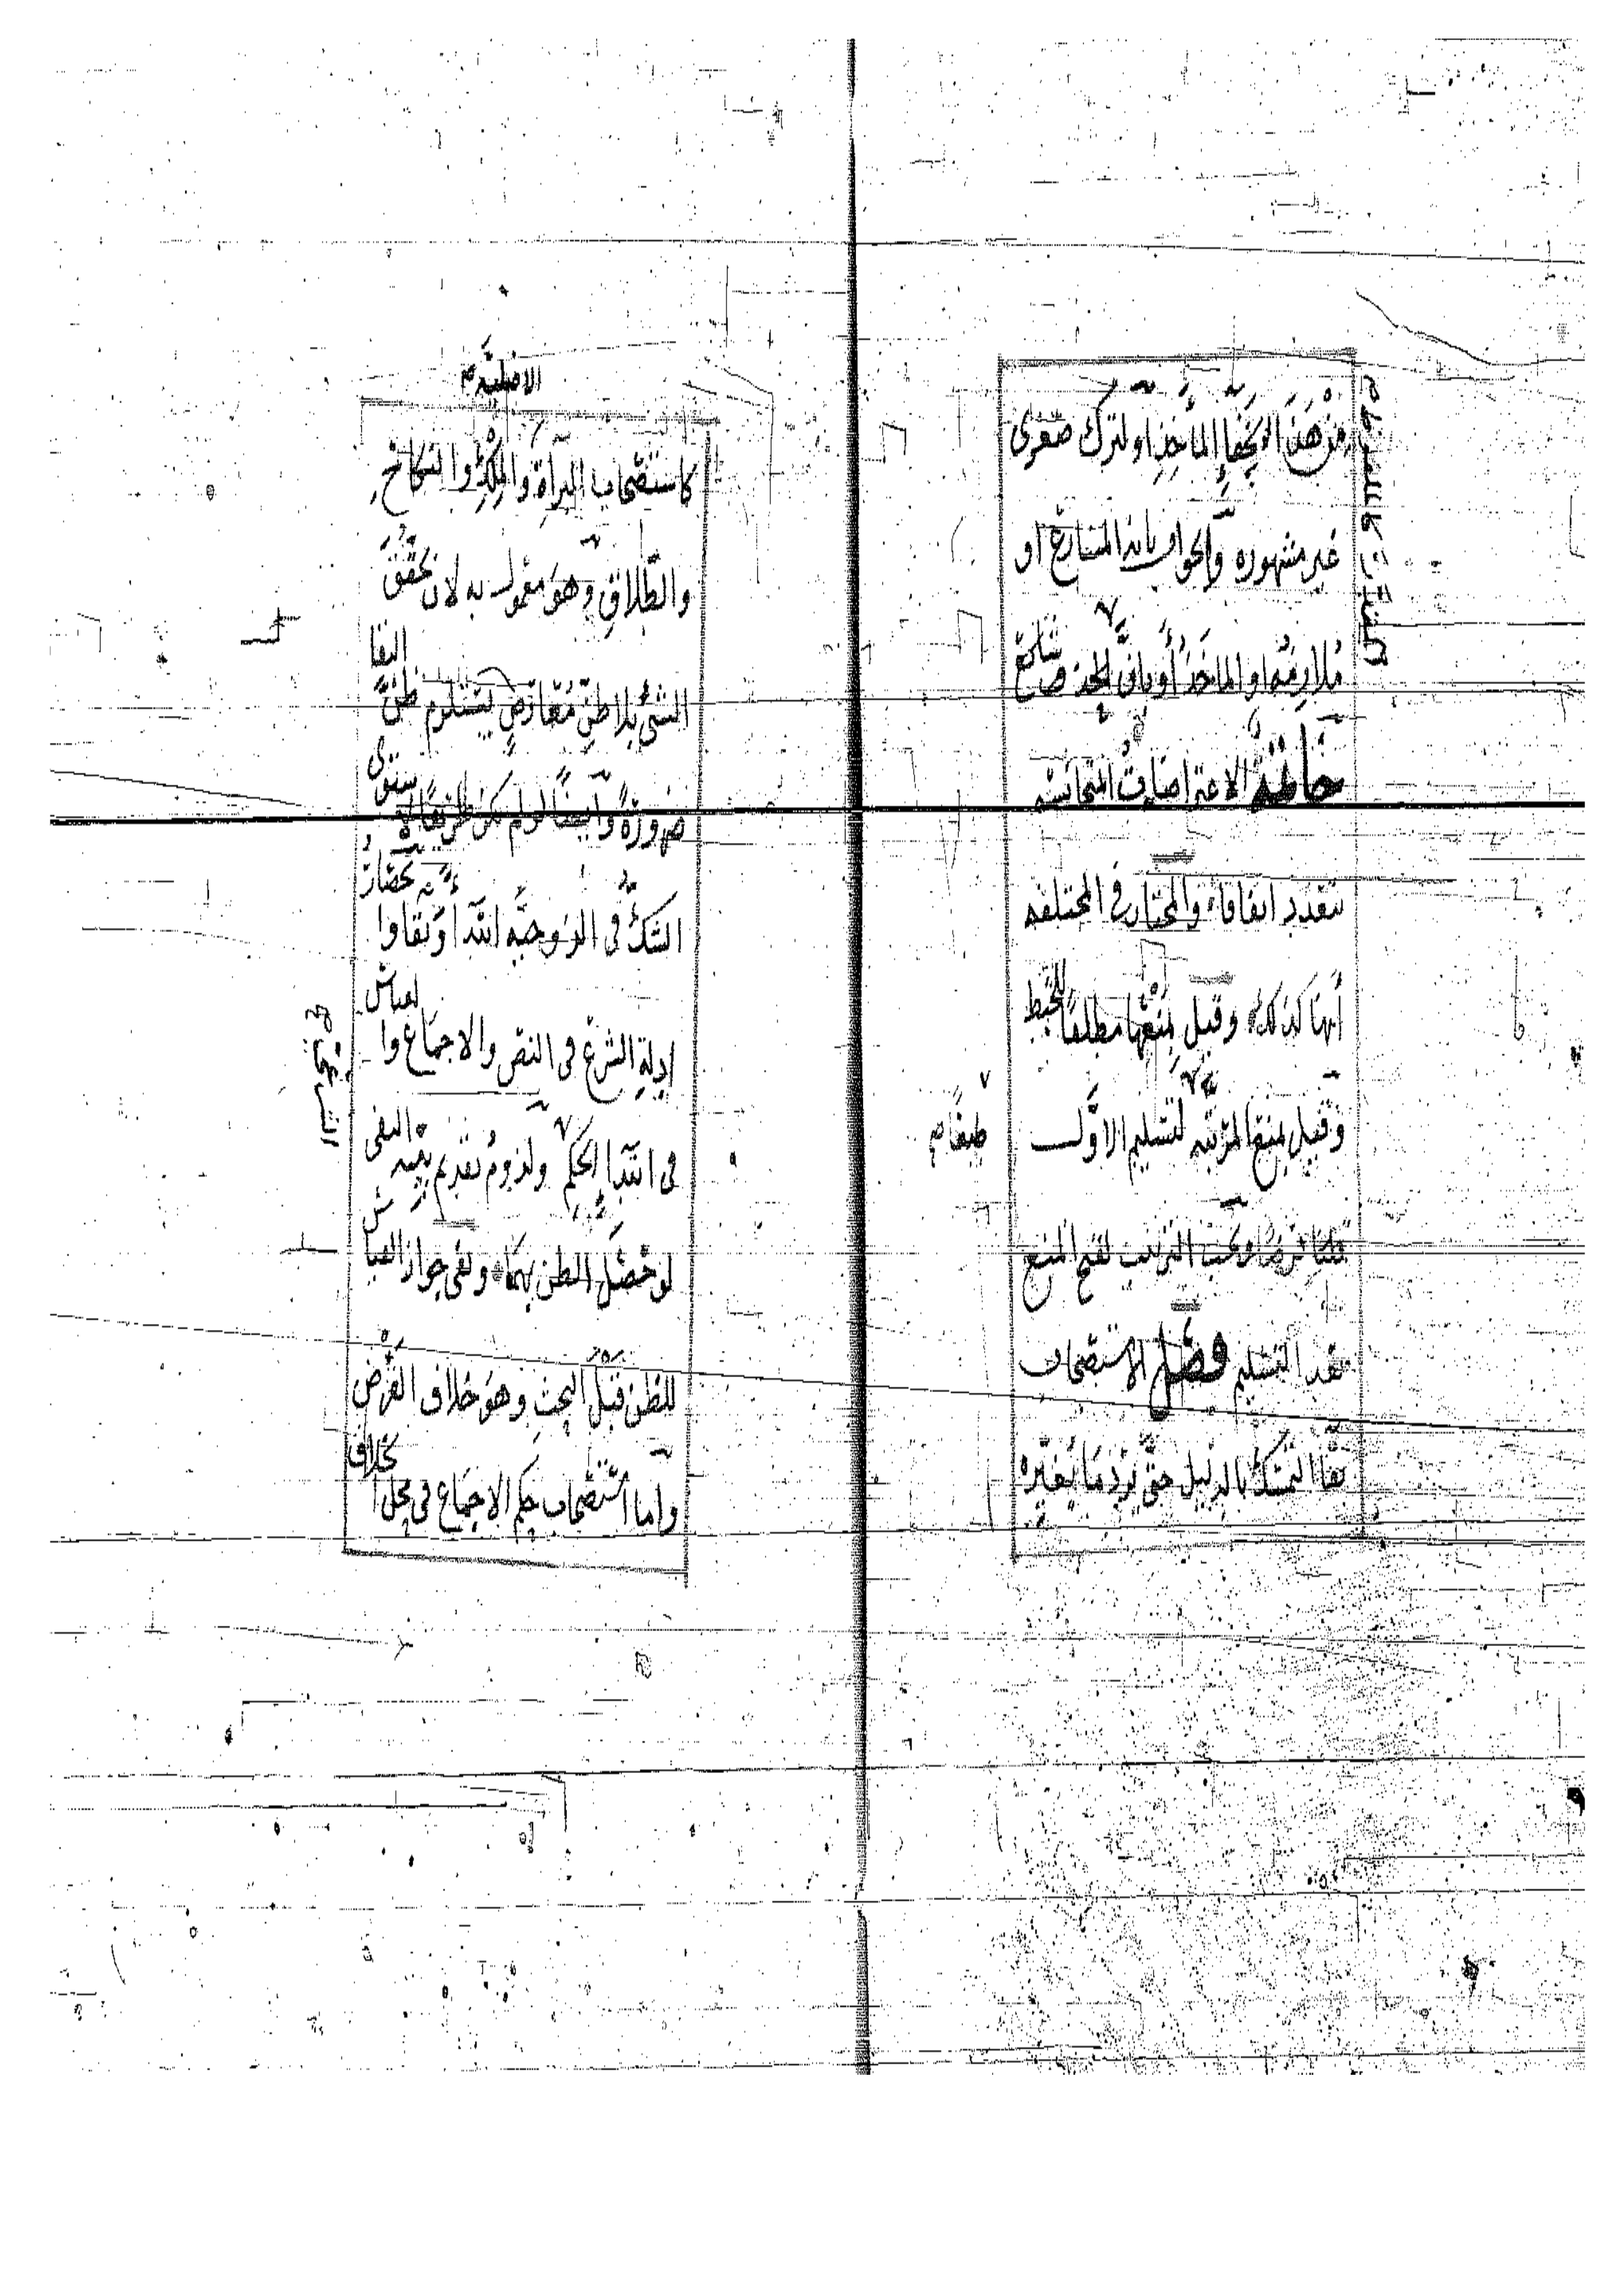 من هنا لخفاء المأخذ او لترك صغرى
غير مشهوره والجواب بانه المتنازع او
ملازمه او المأخذ أو بأن الحذف شائع
خاتمة الاعتراضات المتجانسه
تتعدد اتفاقا والمختار في المختلفه
أنها كذلك وقيل بمنعها مطلقا للخبط
وقيل بمنع المرتبه لتسليم الاوّل
طبعًا صح
قلنا فرضا وتجب الترتيب لقبح المنع
بعد التسليم فصل الاستصحاب
بقا التمسّك بالدليل حتى يرد ما يغيّره
الاصليّه صح
كاستصحاب البرآة والملك والنكاح
والطّلاق وهو معمول به لان تحقّق
الشئ بلا ظنّ مُعارضٍ يستلزم ظنّ البقا
ضرورةً وأيضًا لو لم يكن طريقًا لاستوى
الشك في الزوجيّه ابتدآ وبقا وا
ادلة الشرع في النص والاجماع وا لقياس
في ابتدآ الحكم ولزوم تقديم بيّنه النفى
لو حصل الظن بهما ونفى جواز القياس
للظن قبل البحث وهو خلاف الفرض
واما استصحاب حكم الاجماع في محل الخلاف